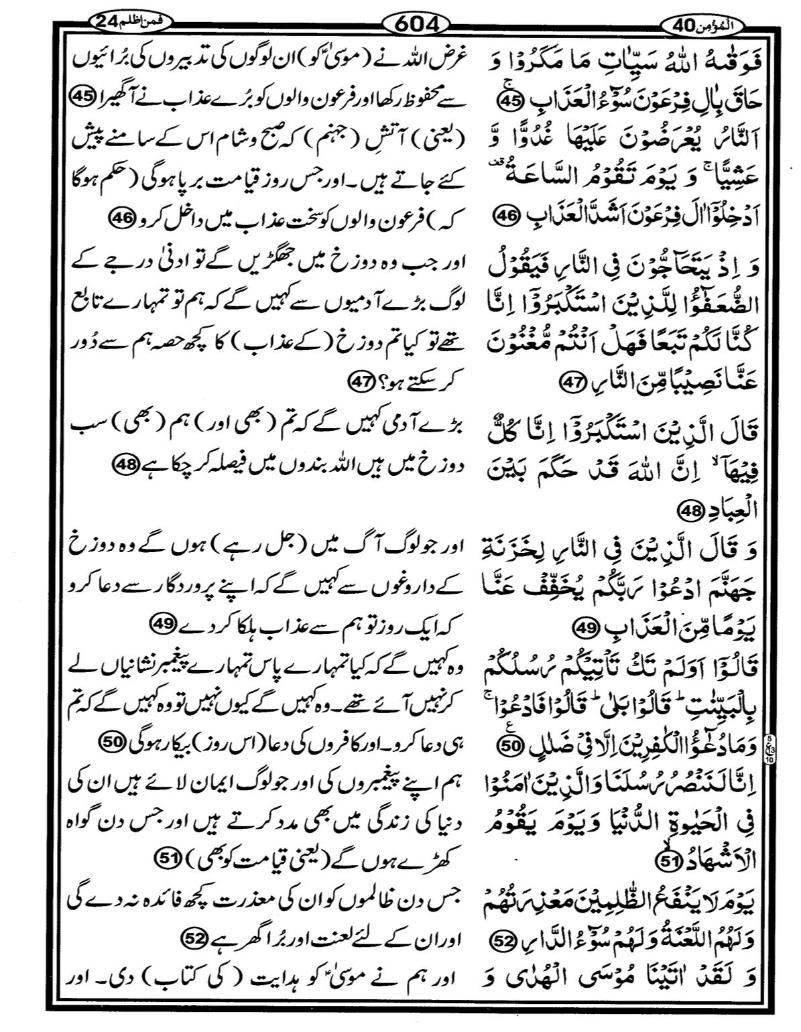 فمن اظلم 24
604
المؤمن 40
فَوَقٰىهُ اللّٰهُ سَيِّاٰتِ مَا مَكَرُوْا وَ
حَاقَ بِاٰلِ فِرْعَوْنَ سُوْٓءُ الْعَذَابِ ۚ 45
اَلنَّارُ يُعْرَضُوْنَ عَلَيْهَا غُدُوًّا وَّ
عَشِيًّا ۚ وَ يَوْمَ تَقُوْمُ السَّاعَةُ ۫
اَدْخِلُوْٓا اٰلَ فِرْعَوْنَ اَشَدَّ الْعَذَابِ 46
وَ اِذْ يَتَحَآجُّوْنَ فِي النَّارِ فَيَقُوْلُ
الضُّعَفٰٓؤُا لِلَّذِيْنَ اسْتَكْبَرُوْٓا اِنَّا
كُنَّا لَكُمْ تَبَعًا فَهَلْ اَنْتُمْ مُّغْنُوْنَ
عَنَّا نَصِيْبًا مِّنَ النَّارِ 47
قَالَ الَّذِيْنَ اسْتَكْبَرُوْٓا اِنَّا كُلٌّ
فِيْهَآ ۙ اِنَّ اللّٰهَ قَدْ حَكَمَ بَيْنَ
الْعِبَادِ 48
وَ قَالَ الَّذِيْنَ فِي النَّارِ لِخَزَنَةِ
جَهَنَّمَ ادْعُوْا رَبَّكُمْ يُخَفِّفْ عَنَّا
يَوْمًا مِّنَ الْعَذَابِ 49
قَالُوْٓا اَوَلَمْ تَكُ تَاْتِيْكُمْ رُسُلُكُمْ
بِالْبَيِّنٰتِ ؕ قَالُوْا بَلٰى ؕ قَالُوْا فَادْعُوْا ۚ
وَمَا دُعٰٓؤُا الْكٰفِرِيْنَ اِلَّا فِيْ ضَلٰلٍ ع 50
اِنَّا لَنَنْصُرُ رُسُلَنَا وَالَّذِيْنَ اٰمَنُوْا
فِي الْحَيٰوةِ الدُّنْيَا وَيَوْمَ يَقُوْمُ
الْاَشْهَادُ ۙ 51
يَوْمَ لَا يَنْفَعُ الظّٰلِمِيْنَ مَعْذِرَتُهُمْ
وَلَهُمُ اللَّعْنَةُ وَلَهُمْ سُوْٓءُ الدَّارِ 52
وَ لَقَدْ اٰتَيْنَا مُوْسَى الْهُدٰى وَ
غرض اللہ نے (موسیٰؑ کو) ان لوگوں کی تدبیروں کی برائیوں
سے محفوظ رکھا اور فرعون والوں کو بُرے عذاب نے آ گھیرا 45
(یعنی) آتشِ (جہنم) کہ صبح و شام اس کے سامنے پیش
کئے جاتے ہیں۔ اور جس روز قیامت برپا ہوگی (حکم ہوگا
کہ) فرعون والوں کو سخت عذاب میں داخل کرو 46
اور جب وہ دوزخ میں جھگڑیں گے تو ادنیٰ درجے کے
لوگ بڑے آدمیوں سے کہیں گے کہ ہم تو تمہارے تابع
تھے تو کیا تم دوزخ (کے عذاب) کا کچھ حصہ ہم سے دُور
کر سکتے ہو؟ 47
بڑے آدمی کہیں گے کہ تم (بھی اور) ہم (بھی) سب
دوزخ میں ہیں اللہ بندوں میں فیصلہ کر چکا ہے 48
اور جو لوگ آگ میں (جل رہے) ہوں گے وہ دوزخ
کے داروغوں سے کہیں گے کہ اپنے پروردگار سے دعا کرو
کہ ایک روز تو ہم سے عذاب ہلکا کر دے 49
وہ کہیں گے کہ کیا تمہارے پاس تمہارے پیغمبر نشانیاں لے
کر نہیں آئے تھے۔ وہ کہیں گے کیوں نہیں تو وہ کہیں گے کہ تم
ہی دعا کرو۔ اور کافروں کی دعا (اس روز) بیکار ہوگی 50
ہم اپنے پیغمبروں کی اور جو لوگ ایمان لائے ہیں ان کی
دنیا کی زندگی میں بھی مدد کرتے ہیں اور جس دن گواہ
کھڑے ہوں گے (یعنی قیامت کو بھی) 51
جس دن ظالموں کو ان کی معذرت کچھ فائدہ نہ دے گی
اور ان کے لئے لعنت اور بُرا گھر ہے 52
اور ہم نے موسیٰؑ کو ہدایت (کی کتاب) دی۔ اور